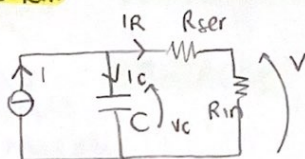 IR Rser
I
Ic
C
Vc
Rin
V